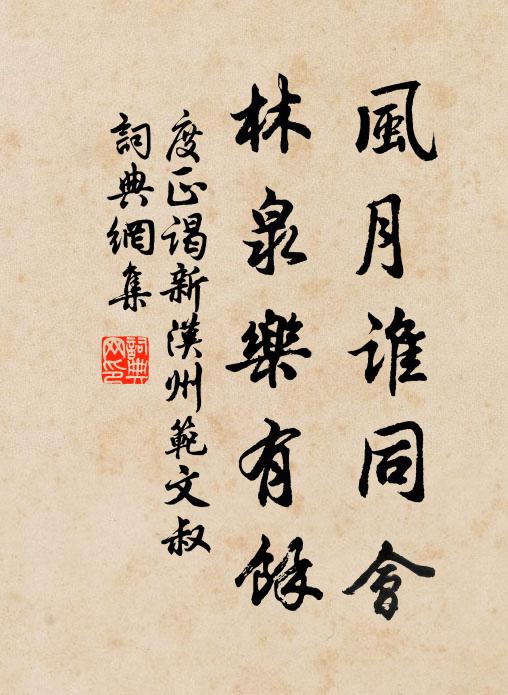 風月誰同會
林泉樂有餘
度正謁新漢州範文叔
詞典網集
詞典網印